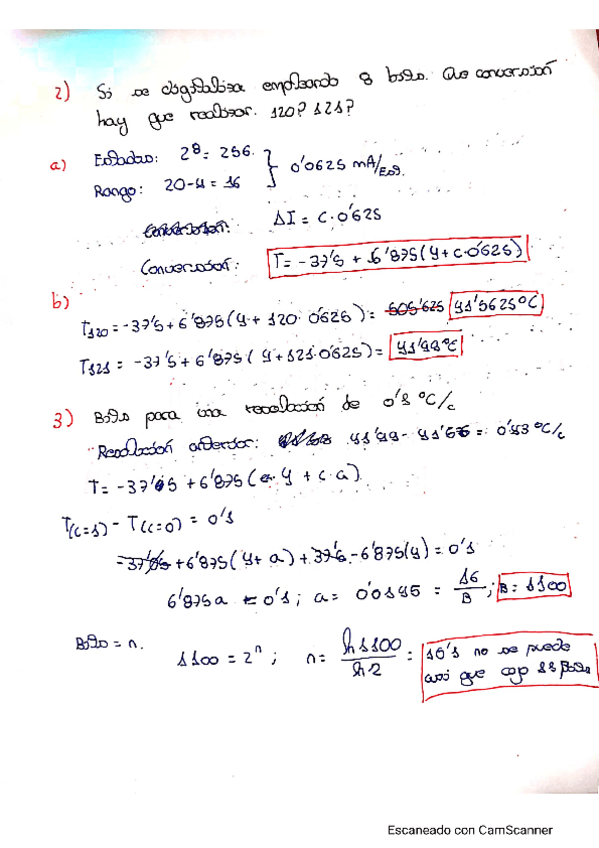 2) Si se digitaliza empleando 8 bits. Que conversión
hay que realizar. 120? 121?
a) Estados: 2^8 = 256. } 0'0625 mA/Est.
Rango: 20-4 = 16
ΔI = C·0'0625
Conversión: T = -37'5 + 6'875(4+C·0'0625)
b)
T120 = -37'5+6'875(4+120·0'0625) = 41'5625ºC
T121 = -37'5+6'875(4+121·0'0625) = 41'99ºC
3) Bits para una resolución de 0'1 ºC/c
Resolución anterior: 41'99-41'56 = 0'43 ºC/c
T = -37'5 + 6'875(4 + C·a)
T(c=1) - T(c=0) = 0'1
-37'5+6'875(4+a)+37'5-6'875(4) = 0'1
6'875a = 0'1; a = 0'0145 = 16/B; B = 1100
Bits = n. 1100 = 2^n; n = ln 1100/ln 2 = 10'1 no se puede
así que cojo 11 Bits
Escaneado con CamScanner